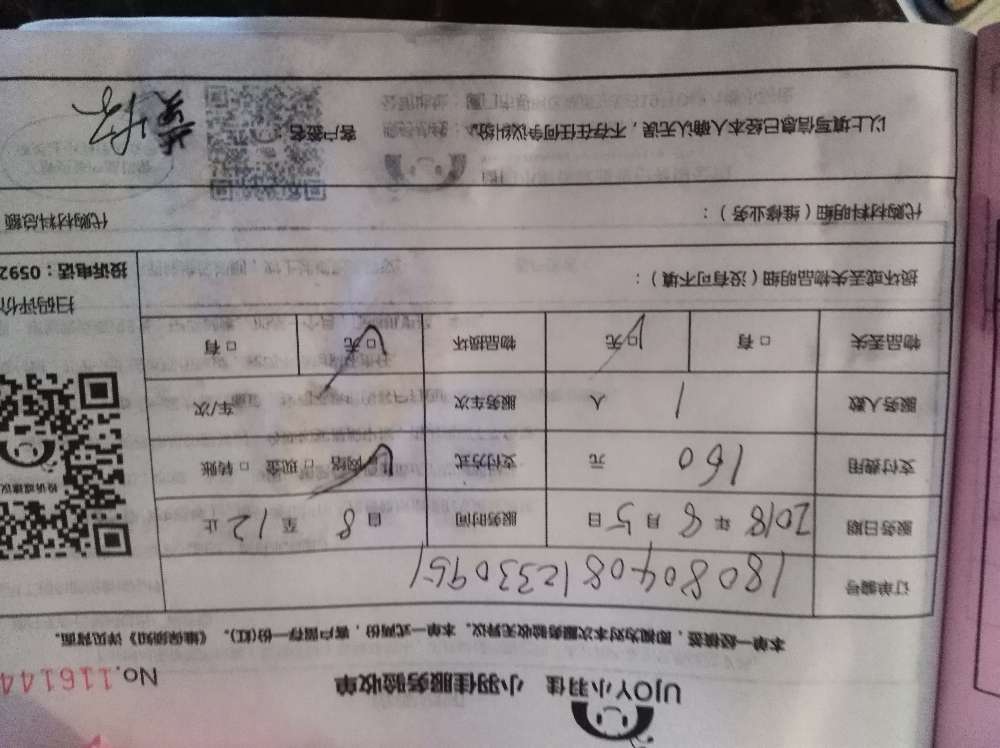 UJOY小羽佳 小羽佳服务验收单
No.116144
本单一经核签，即视为对本次服务验收无异议。本单一式两份，客户留存一份(红)。《维保须知》详见背面。
订单编号 1808040812330951
服务日期 2018年8月5日 服务时间 自8至12止
支付费用 160元 支付方式 □网络 □现金 □转账
服务人数 1人 服务车次 车/次
物品丢失 □有 □无 物品损坏 □无 □有
损坏或丢失物品明细（没有可不填）：
投诉或建议
扫码评价
投诉电话：0592
代购材料明细（维修业务）：
代购材料总额
以上填写信息已经本人确认无误，不存在任何争议纠纷。 客户签名：